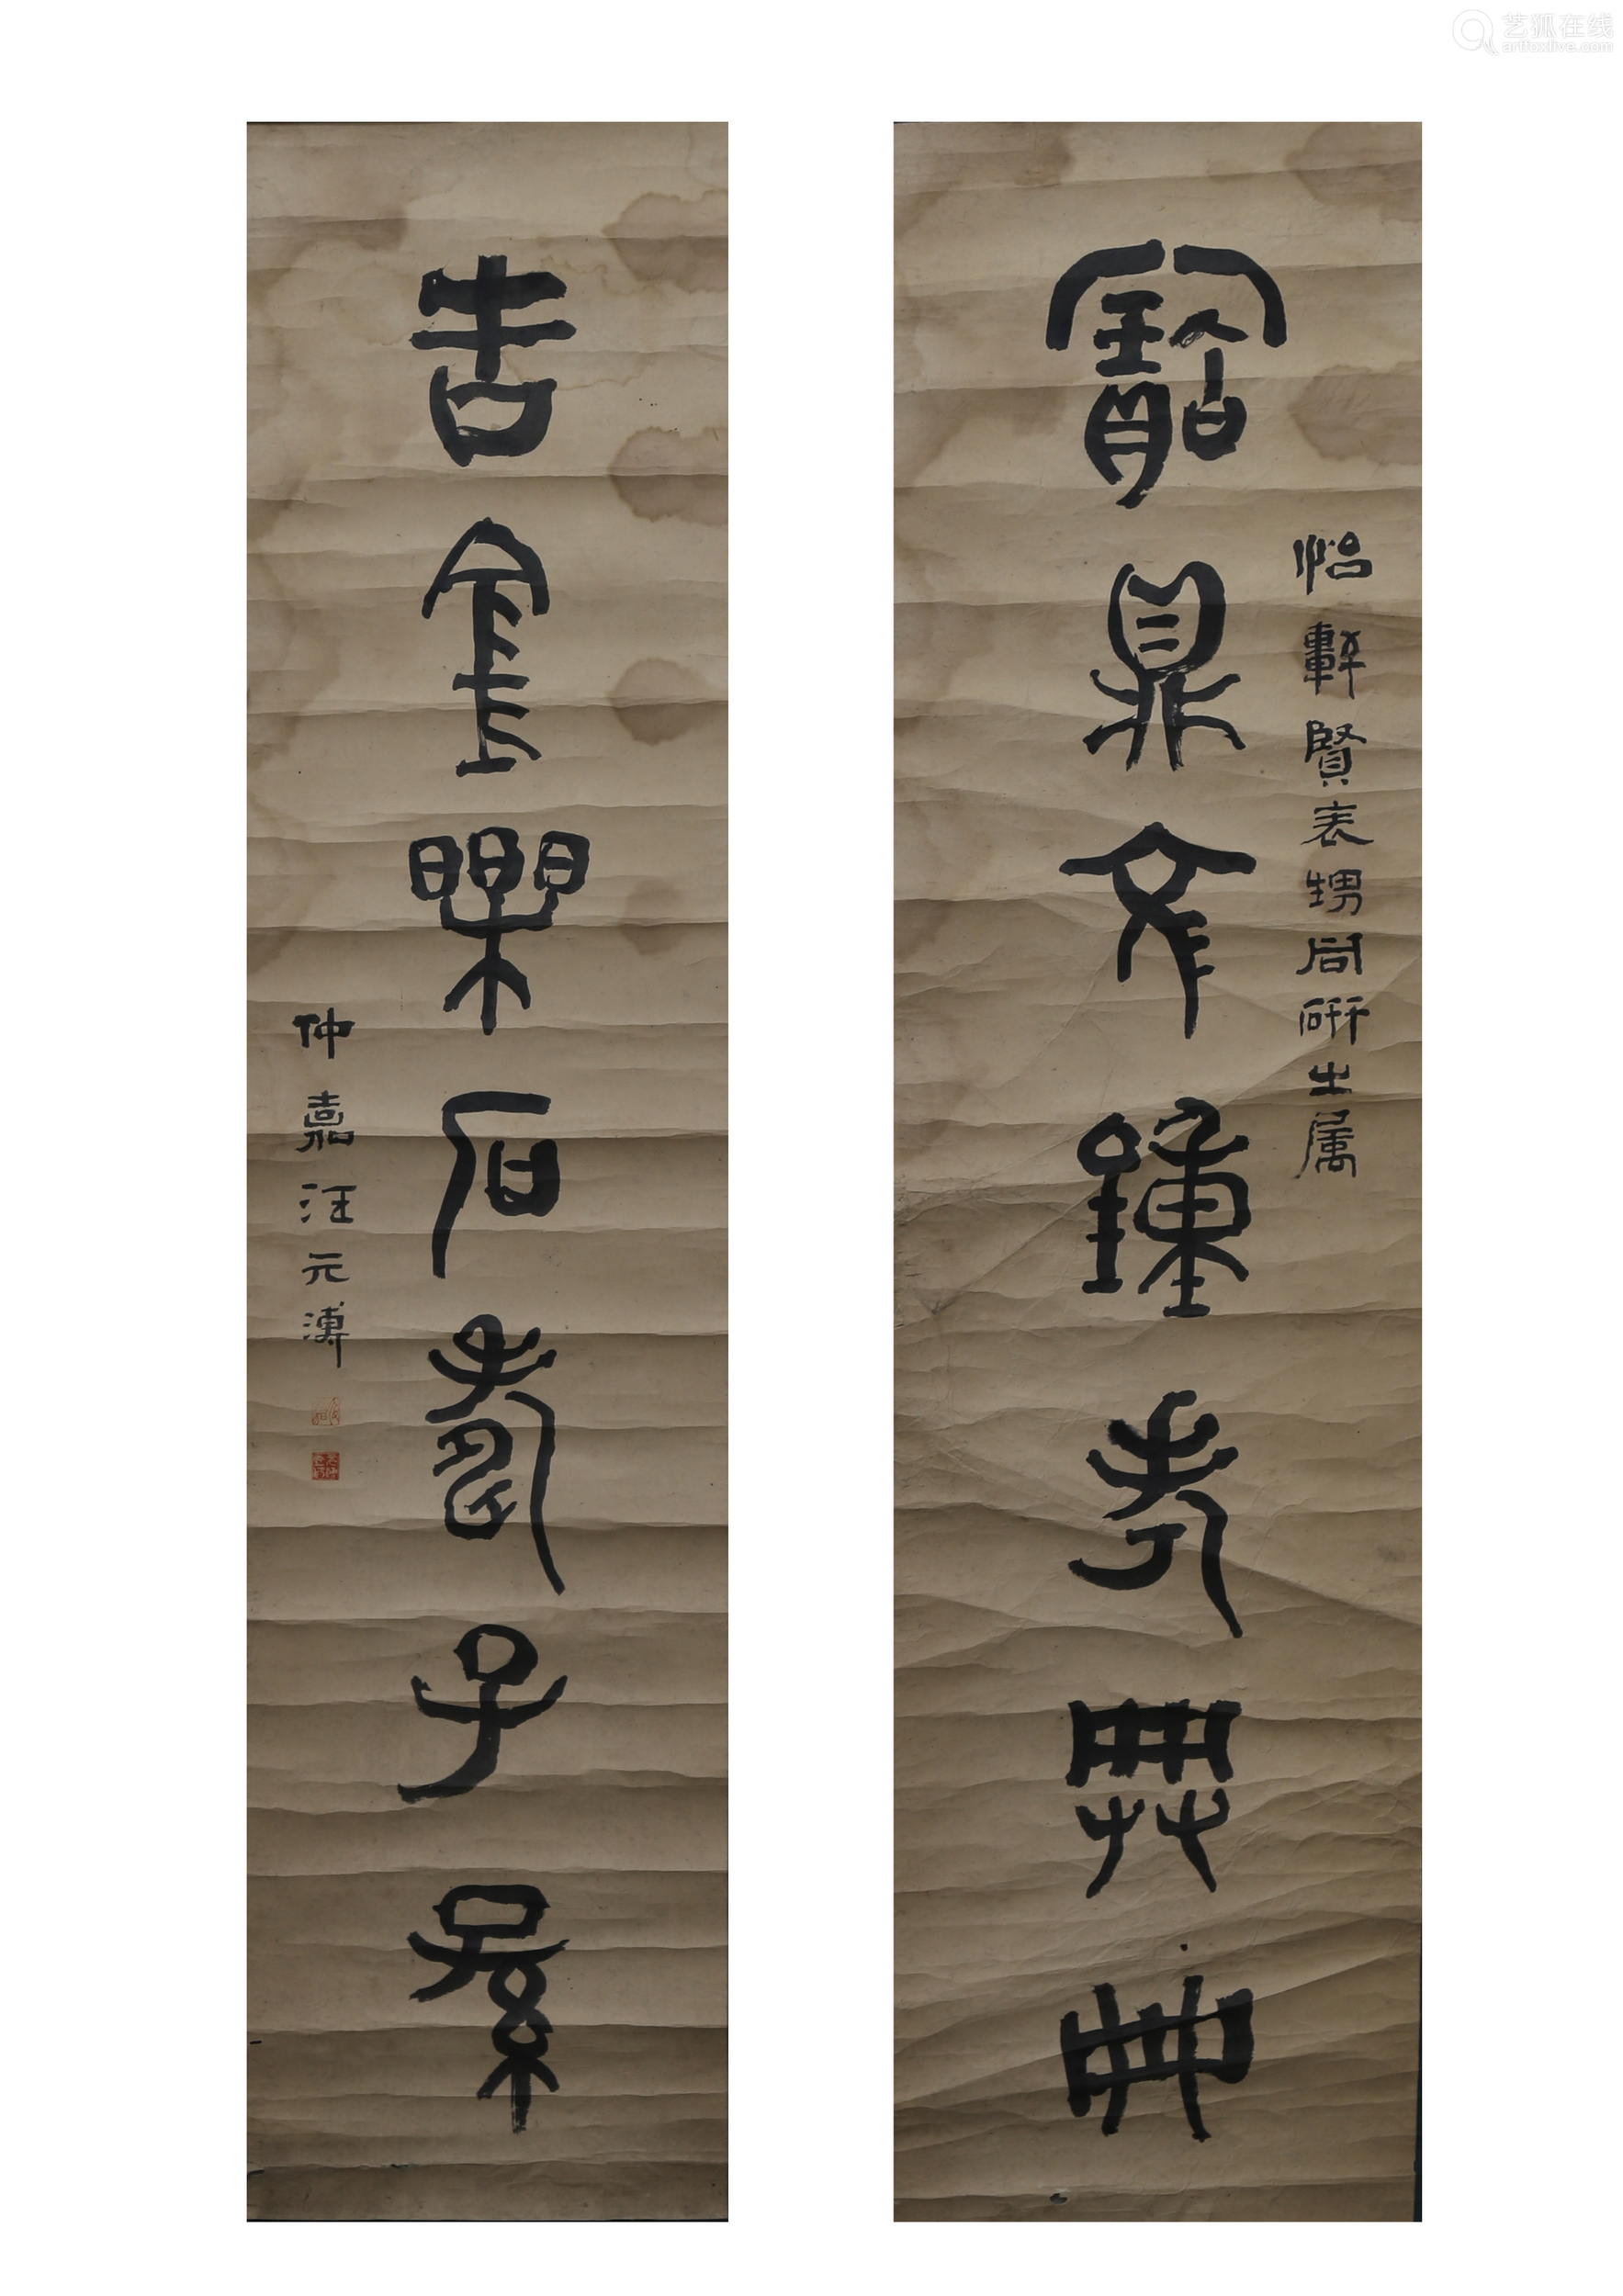 艺狐在线
artfoxlive.com
怡軒賢表甥同研之属
寶鼎文鐘考典冊
吉金樂石壽子孫
仲嘉汪元溥